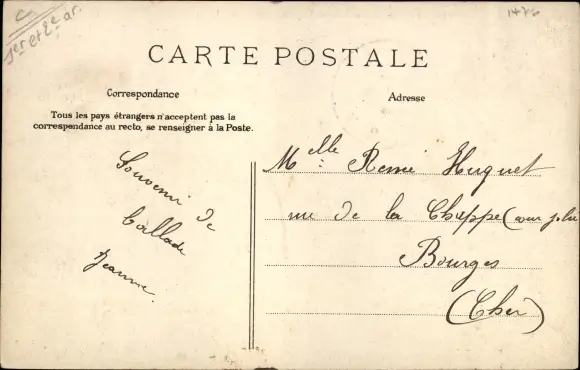 C
1er et 2e ar.
1476
CARTE POSTALE
Correspondance
Adresse
Tous les pays étrangers n'acceptent pas la
correspondance au recto, se renseigner à la Poste.
Souvenir de
ballade
Jeanne.
Melle Remé Huguet
rue de la Chappe (cour
Bourges
(Cher)